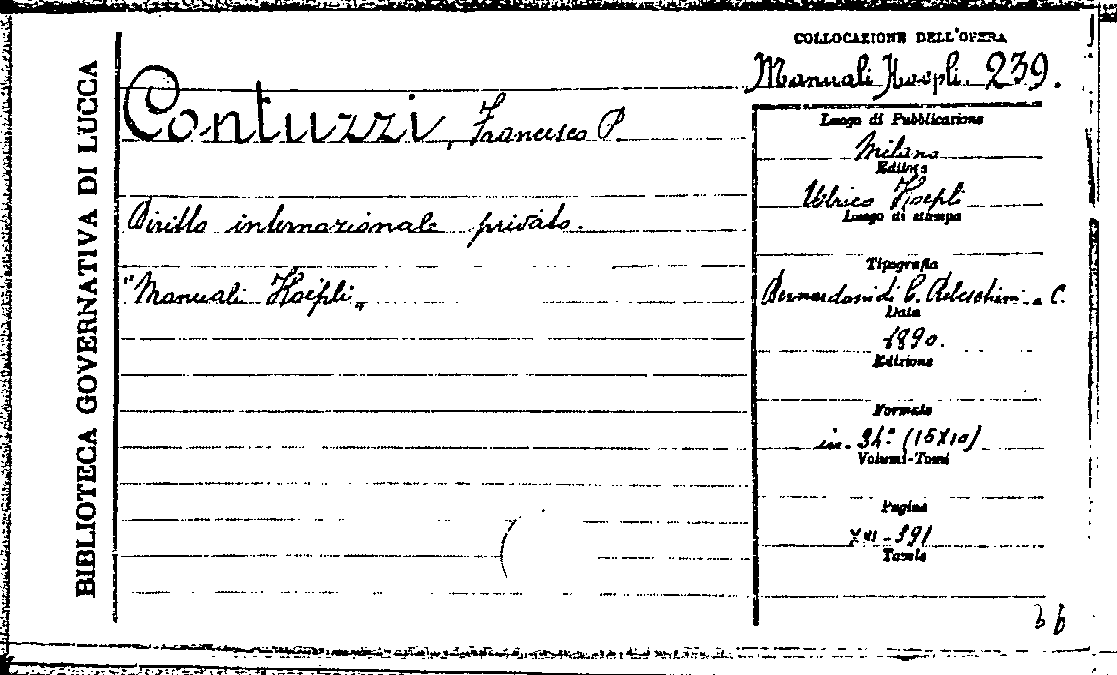 BIBLIOTECA GOVERNATIVA DI LUCCA
COLLOCAZIONE DELL'OPERA
Manuali Hoepli. 239.
Contuzzi, Francesco P.
Diritto internazionale privato.
"Manuali Hoepli„
Luogo di Pubblicazione
Milano
Editore
Ulrico Hoepli
Luogo di stampa
Tipografia
Bernardoni di C. Rebeschini e C.
Data
1890.
Edizione
Formato
in-24º (15X10)
Volumi-Tomi
Pagine
XVI-391
Tavole
bb